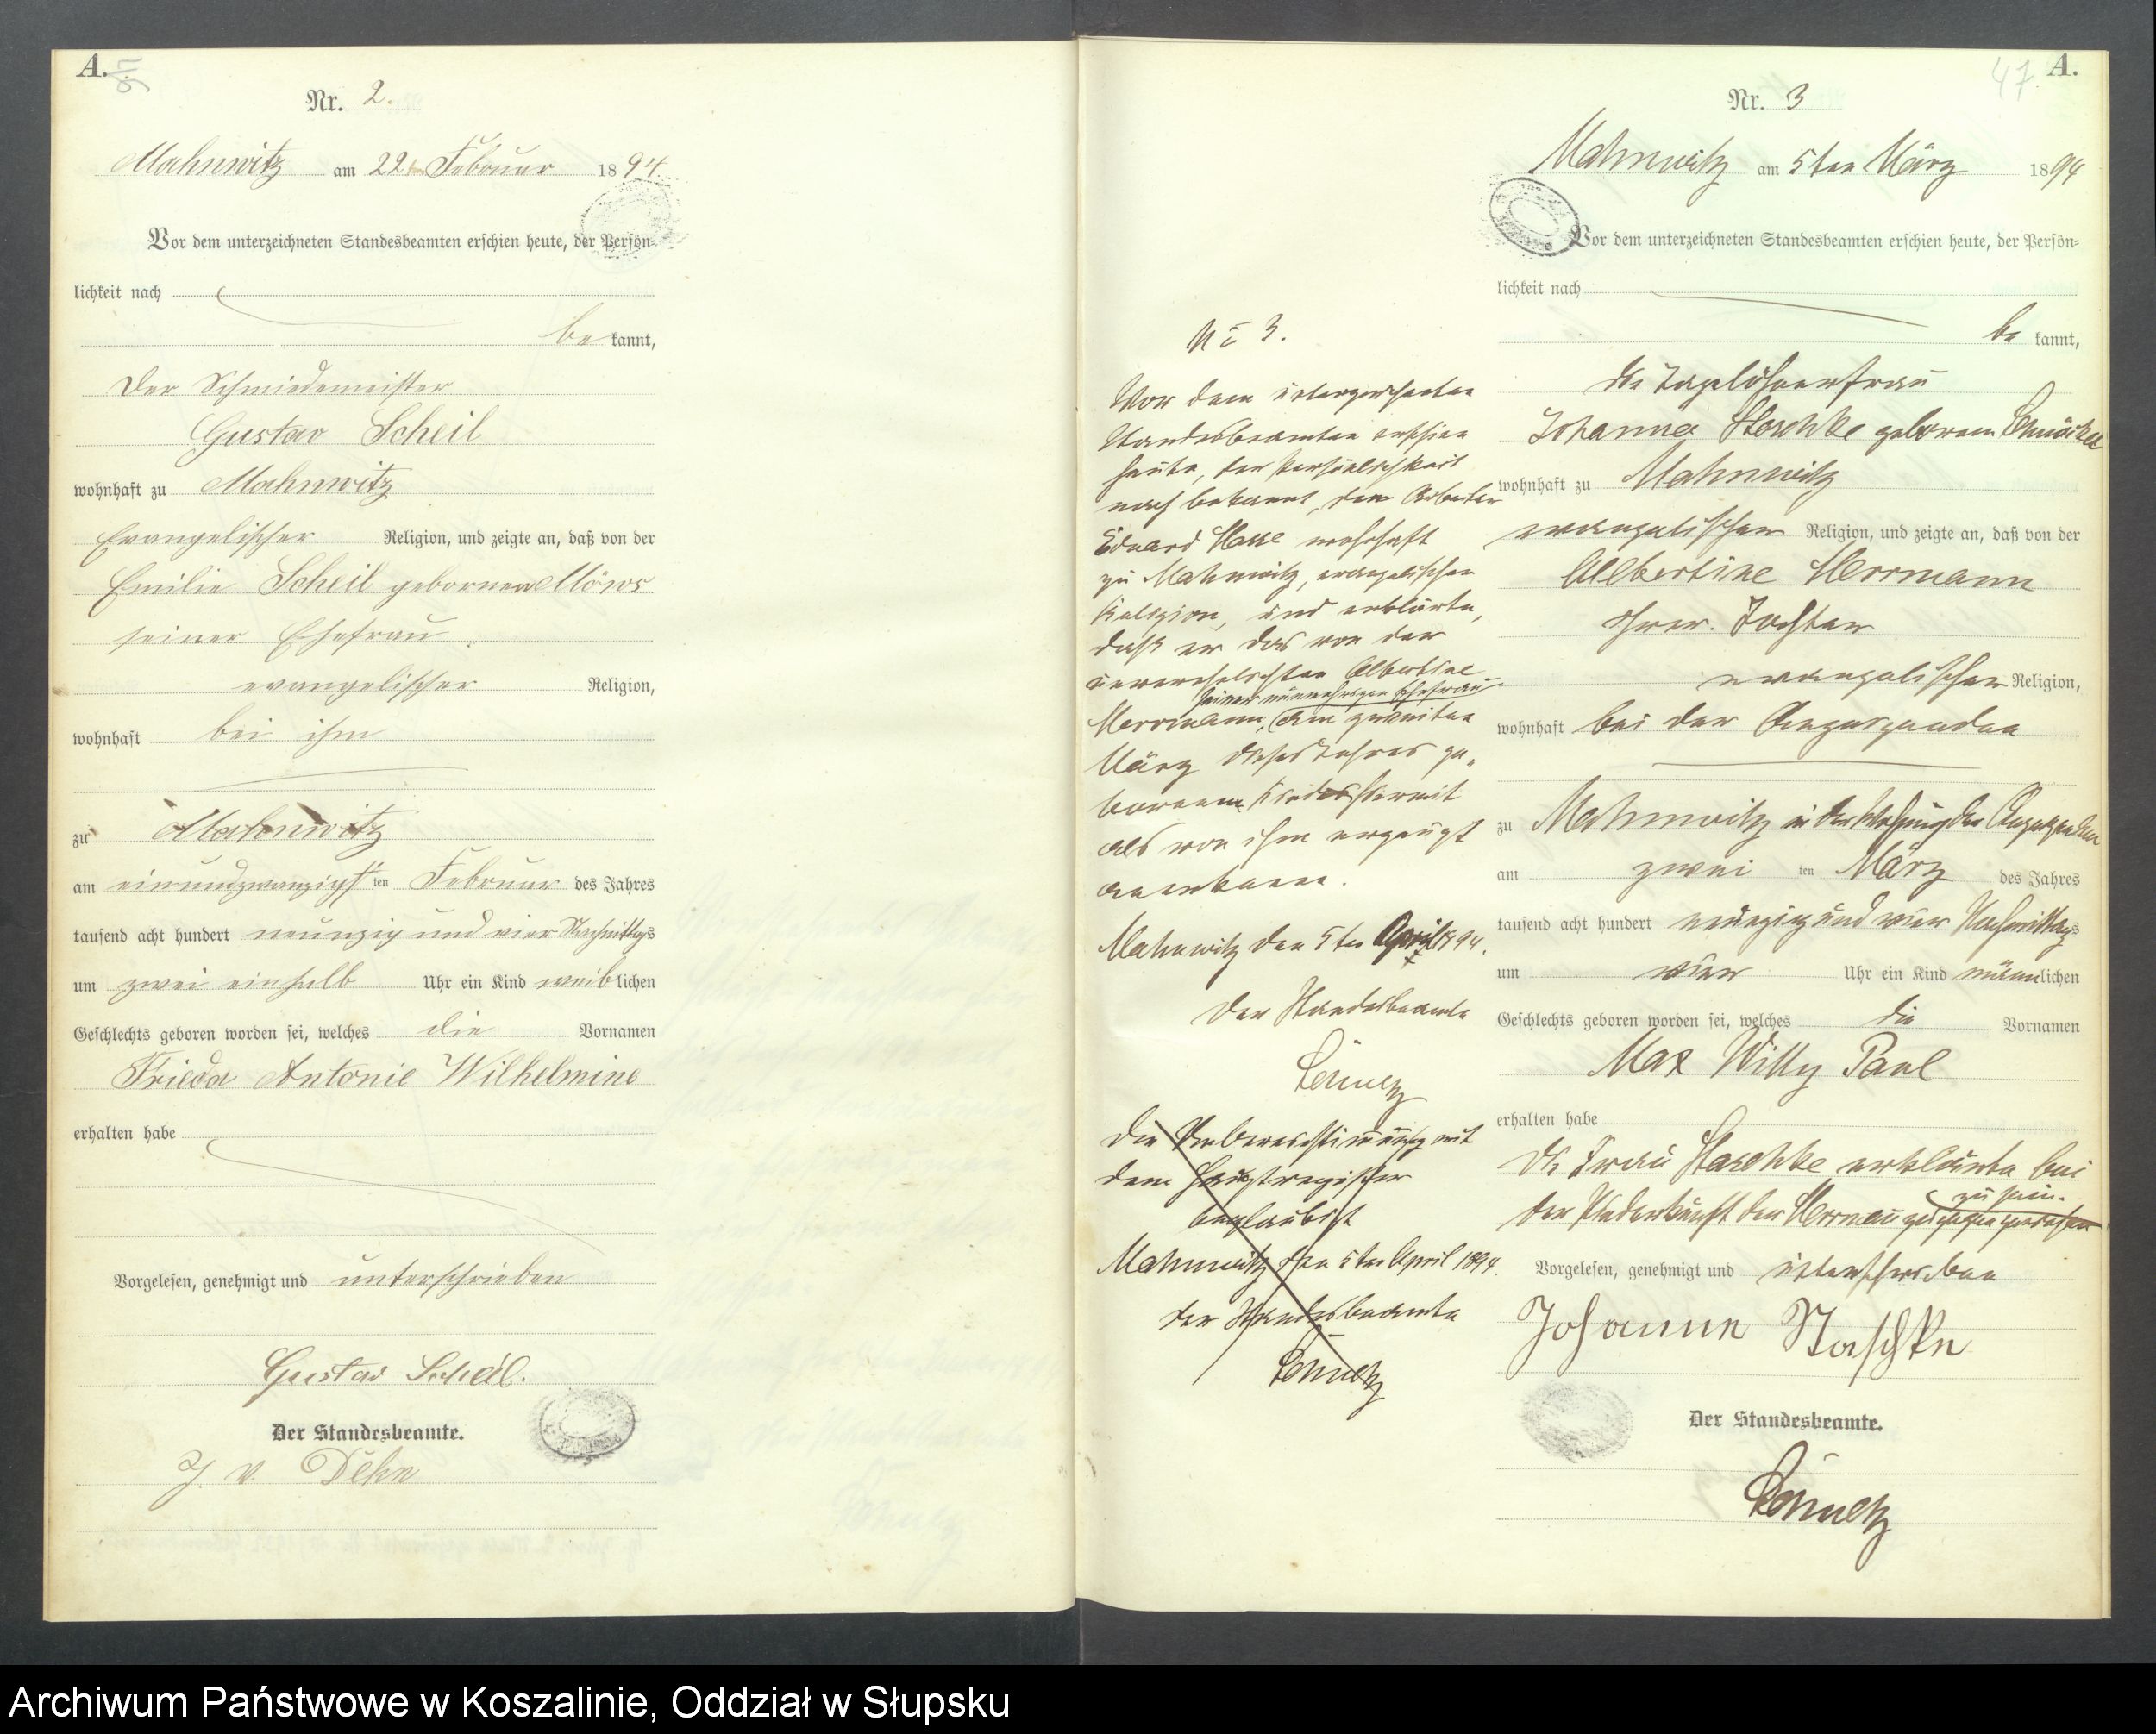 A.
Nr. 2.
Mahnwitz am 22ten Februar 1894.
Vor dem unterzeichneten Standesbeamten erschien heute, der Persön-
lichkeit nach
be kannt,
der Schmiedemeister
Gustav Scheil
wohnhaft zu Mahnwitz
Evangelischer Religion, und zeigte an, daß von der
Emilie Scheil gebornen Möws
seiner Ehefrau
evangelischer Religion,
wohnhaft bei ihm
zu Mahnwitz
am einundzwanzigsten Februar des Jahres
tausend acht hundert neunzig und vier Nachmittags
um zwei einhalb Uhr ein Kind weiblichen
Geschlechts geboren worden sei, welches die Vornamen
Frieda Antonie Wilhelmine
erhalten habe
Vorgelesen, genehmigt und unterschrieben
Gustav Scheil.
Der Standesbeamte.
J. V. Dehn
No 3.
Vor dem unterzeichneten
Standesbeamten erschien
heute, der Persönlichkeit
nach bekannt, der Arbeiter
Eduard Hasse wohnhaft
zu Mahnwitz, evangelischer
Religion, und erklärte,
daß er das von der
unverehelichten Albertine
seiner nunmehrigen Ehefrau
Herrmann, am zweiten
März dieses Jahres ge-
borenen Kindes hiermit
als von ihm erzeugt
anerkenne.
Mahnwitz den 5ten April 1894.
Der Standesbeamte
Die Uebereinstimmung mit
dem Hauptregister
beglaubigt
Mahnwitz den 5ten April 1894.
Der Standesbeamte
47.
A.
Nr. 3
Mahnwitz am 5ten März 1894
Vor dem unterzeichneten Standesbeamten erschien heute, der Persön-
lichkeit nach
be kannt,
die Tagelöhnerfrau
Johanna Staschke geborene
wohnhaft zu Mahnwitz
evangelischer Religion, und zeigte an, daß von der
Albertine Herrmann
ihrer Tochter
evangelischer Religion,
wohnhaft bei der Anzeigenden
zu Mahnwitz in der Wohnung der Anzeigenden
am zwei ten März des Jahres
tausend acht hundert neunzig und vier Nachmittags
um vier Uhr ein Kind männlichen
Geschlechts geboren worden sei, welches die Vornamen
Max Willy Paul
erhalten habe
Die Frau Staschke erklärte bei
zu sein.
der Niederkunft der Herrmann zugegen gewesen
Vorgelesen, genehmigt und unterschrieben
Johanne Staschke
Der Standesbeamte.
Archiwum Państwowe w Koszalinie, Oddział w Słupsku